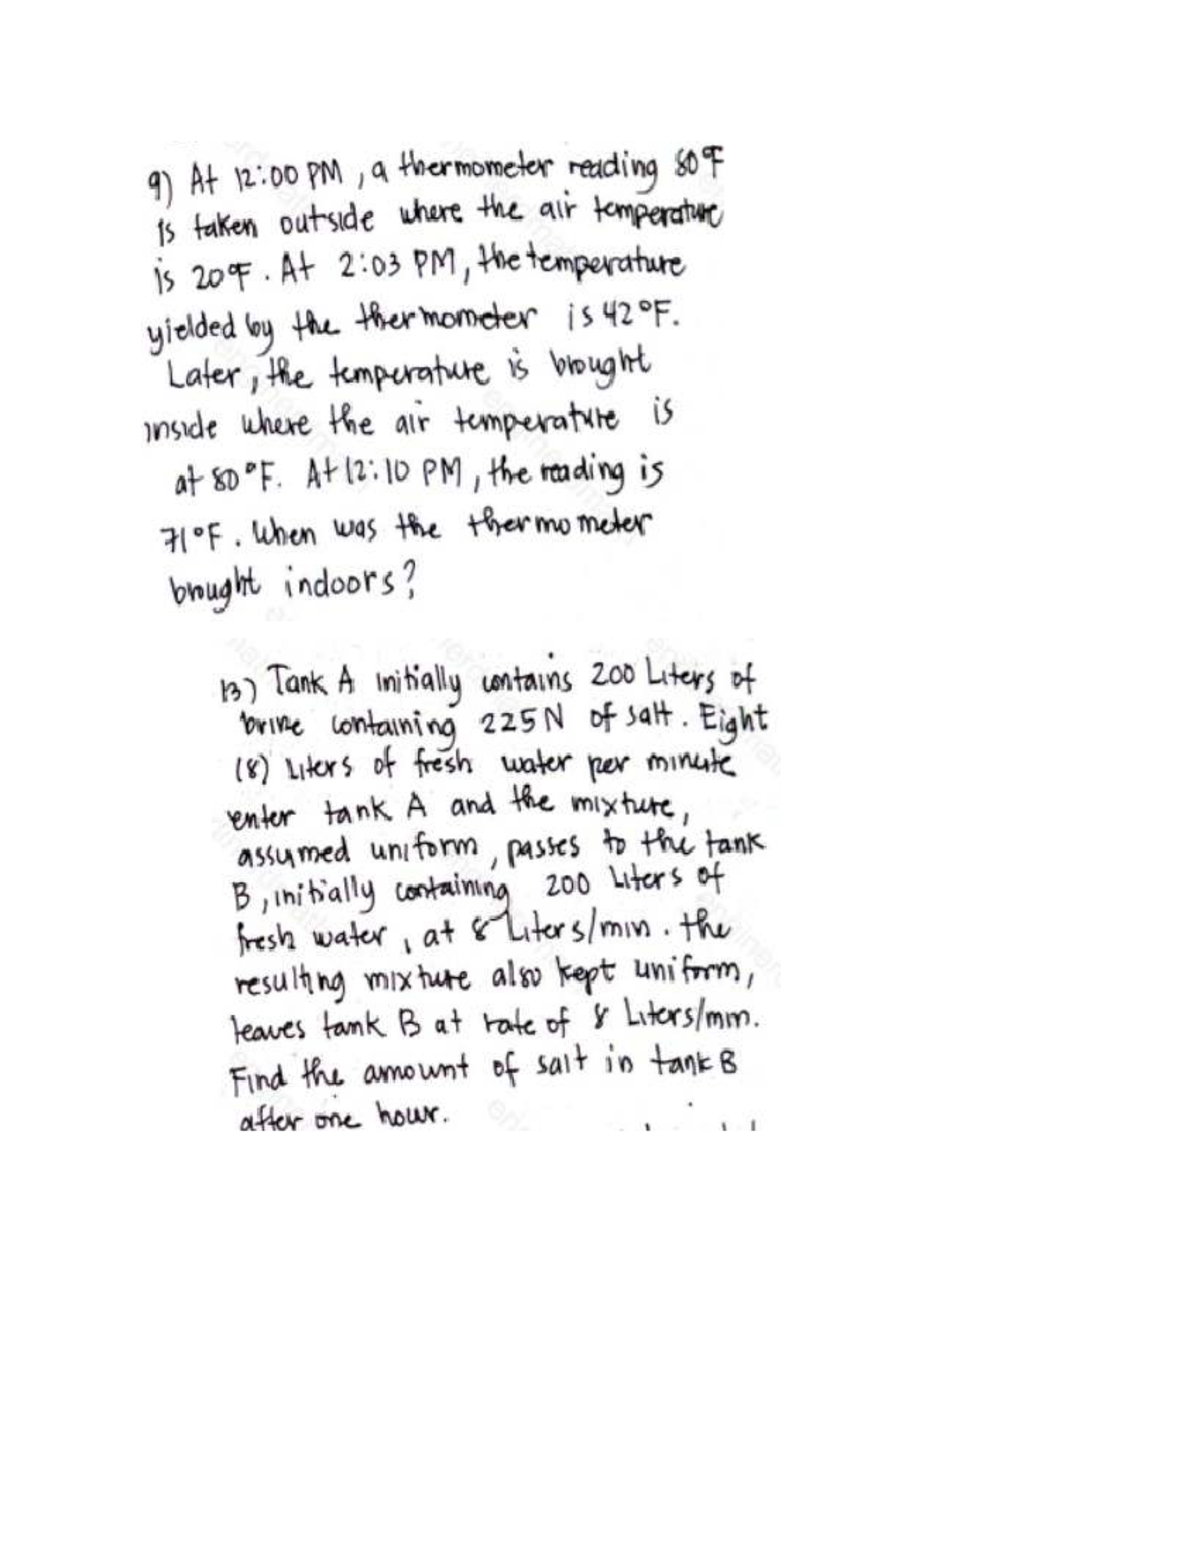 9) At 12:00 PM, a thermometer reading 80°F
is taken outside where the air temperature
is 20°F. At 2:03 PM, the temperature
yielded by the thermometer is 42°F.
Later, the temperature is brought
inside where the air temperature is
at 80°F. At 12:10 PM, the reading is
71°F. When was the thermometer
brought indoors?
13) Tank A initially contains 200 Liters of
brine containing 225N of salt. Eight
(8) Liters of fresh water per minute
enter tank A and the mixture,
assumed uniform, passes to the tank
B, initially containing 200 Liters of
fresh water, at 8 Liters/min. the
resulting mixture also kept uniform,
leaves tank B at rate of 8 Liters/min.
Find the amount of salt in tank B
after one hour.